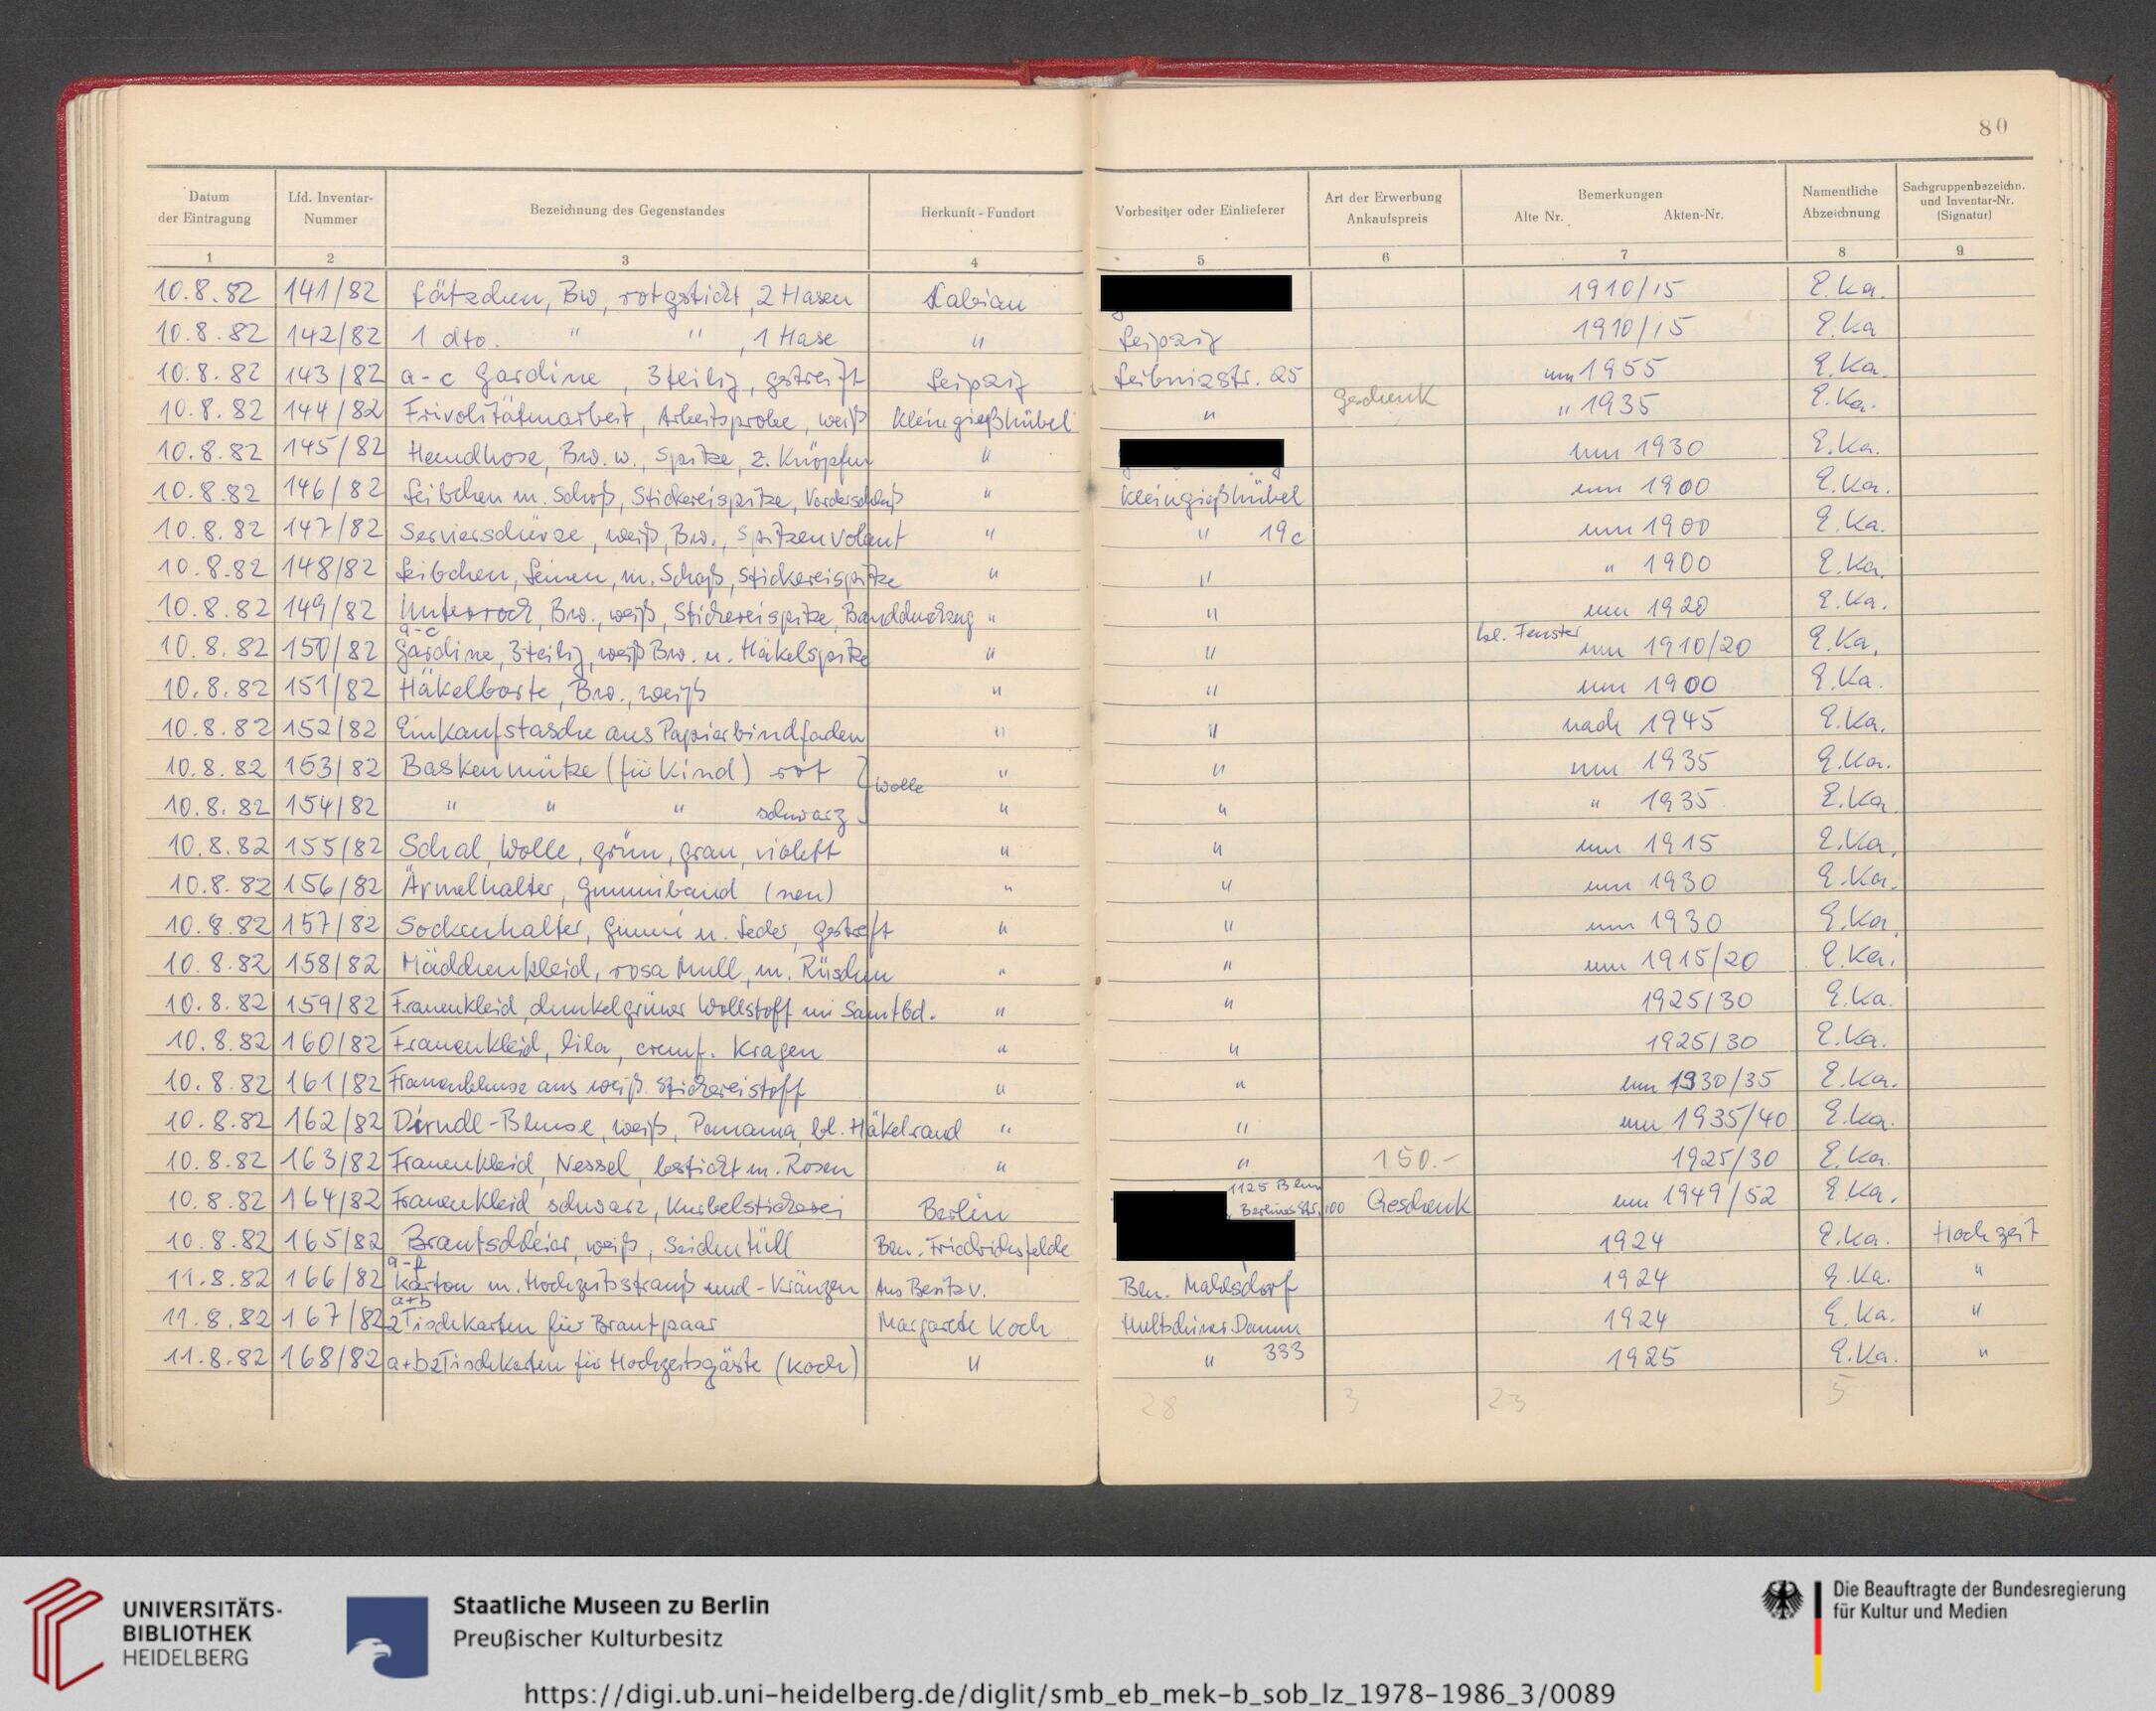 80
Datum der Eintragung | Lfd. Inventar-Nummer | Bezeichnung des Gegenstandes | Herkunft - Fundort | Vorbesitzer oder Einlieferer | Art der Erwerbung Ankaufspreis | Bemerkungen Alte Nr. Akten-Nr. | Namentliche Abzeichnung | Sachgruppenbezeichn. und Inventar-Nr. (Signatur)
1 | 2 | 3 | 4 | 5 | 6 | 7 | 8 | 9
10.8.82 | 141/82 | Lätzchen, Bw, rotgestickt, 2 Hasen | Labiau | 1910/15 | E.Ka.
10.8.82 | 142/82 | 1 dto. " " , 1 Hase | " | Leipzig | 1910/15 | E.Ka
10.8.82 | 143/82 | a-c Gardine, 3teilig, gestreift | Leipzig | Leibnizstr. 25 | um 1955 | E.Ka.
10.8.82 | 144/82 | Frivolitätenarbeit, Arbeitsprobe, weiß | Kleingießhübel | " | Geschenk | " 1935 | E.Ka.
10.8.82 | 145/82 | Hemdhose, Bw. w., Spitze, z. Knöpfen | " | um 1930 | E.Ka.
10.8.82 | 146/82 | Leibchen m. Schoß, Stickereispitze, Vorderschluß | " | Kleingießhübel | um 1900 | E.Ka.
10.8.82 | 147/82 | Servierschürze, weiß, Bw., Spitzenvolant | " | " 19c | um 1900 | E.Ka.
10.8.82 | 148/82 | Leibchen, Leinen, m. Schoß, Stickereispitze | " | " | " 1900 | E.Ka.
10.8.82 | 149/82 | Unterrock, Bw., weiß, Stickereispitze, Banddurchzug | " | " | um 1920 | E.Ka.
10.8.82 | 150/82 | a-c Gardine, 3teilig, weiß Bw. m. Häkelspitze | " | " | kl. Fenster um 1910/20 | E.Ka.
10.8.82 | 151/82 | Häkelborte, Bw., weiß | " | " | um 1900 | E.Ka.
10.8.82 | 152/82 | Einkaufstasche aus Papierbindfaden | " | " | nach 1945 | E.Ka.
10.8.82 | 153/82 | Baskenmütze (für Kind) rot } Wolle | " | " | um 1935 | E.Ka.
10.8.82 | 154/82 | " " " schwarz | " | " | " 1935 | E.Ka
10.8.82 | 155/82 | Schal, Wolle, grün, grau, violett | " | " | um 1915 | E.Ka.
10.8.82 | 156/82 | Ärmelhalter, Gummiband (neu) | " | " | um 1930 | E.Ka.
10.8.82 | 157/82 | Sockenhalter, Gummi u. Leder, gestreift | " | " | um 1930 | E.Ka.
10.8.82 | 158/82 | Mädchenkleid, rosa Mull, m. Rüschen | " | " | um 1915/20 | E.Ka.
10.8.82 | 159/82 | Frauenkleid, dunkelgrüner Wollstoff mi Samtbd. | " | " | 1925/30 | E.Ka.
10.8.82 | 160/82 | Frauenkleid, lila, cremf. Kragen | " | " | 1925/30 | E.Ka.
10.8.82 | 161/82 | Frauenbluse aus weiß. Stickereistoff | " | " | um 1930/35 | E.Ka.
10.8.82 | 162/82 | Dirndl-Bluse, weiß, Panama, bl. Häkelrand | " | " | um 1935/40 | E.Ka.
10.8.82 | 163/82 | Frauenkleid, Nessel, bestickt m. Rosen | " | " | 150.- | 1925/30 | E.Ka.
10.8.82 | 164/82 | Frauenkleid schwarz, Kurbelstickerei | Berlin | 1125 Bln Berliner Str. 100 | Geschenk | um 1949/52 | E.Ka.
10.8.82 | 165/82 | Brautschleier, weiß, Seidentüll | Bln. Friedrichsfelde | 1924 | E.Ka. | Hochzeit
11.8.82 | 166/82 | Karton m. Hochzeitsstrauß und -Kränzen | Aus Besitz v. | Bln. Mahlsdorf | 1924 | E.Ka. | "
11.8.82 | 167/82 | a+b 2 Tischkarten für Brautpaar | Margarete Koch | Hultschiner Damm | 1924 | E.Ka. | "
11.8.82 | 168/82 | a+b 2 Tischkarten für Hochzeitsgäste (Koch) | " | " 333 | 1925 | E.Ka. | "
28 | 3 | 23 | 5
UNIVERSITÄTS-
BIBLIOTHEK
HEIDELBERG
Staatliche Museen zu Berlin
Preußischer Kulturbesitz
Die Beauftragte der Bundesregierung
für Kultur und Medien
https://digi.ub.uni-heidelberg.de/diglit/smb_eb_mek-b_sob_lz_1978-1986_3/0089